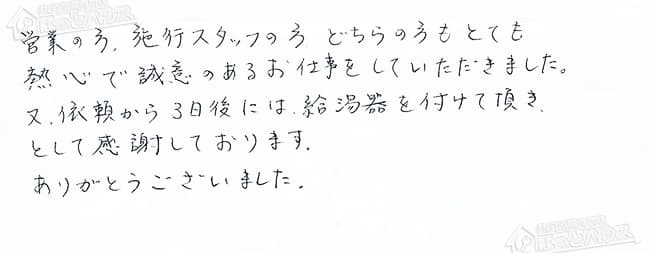 営業の方、施行スタッフの方 どちらの方もとても
熱心で誠意のあるお仕事をしていただきました。
又、依頼から3日後には、給湯器を付けて頂き、
として感謝しております。
ありがとうございました。